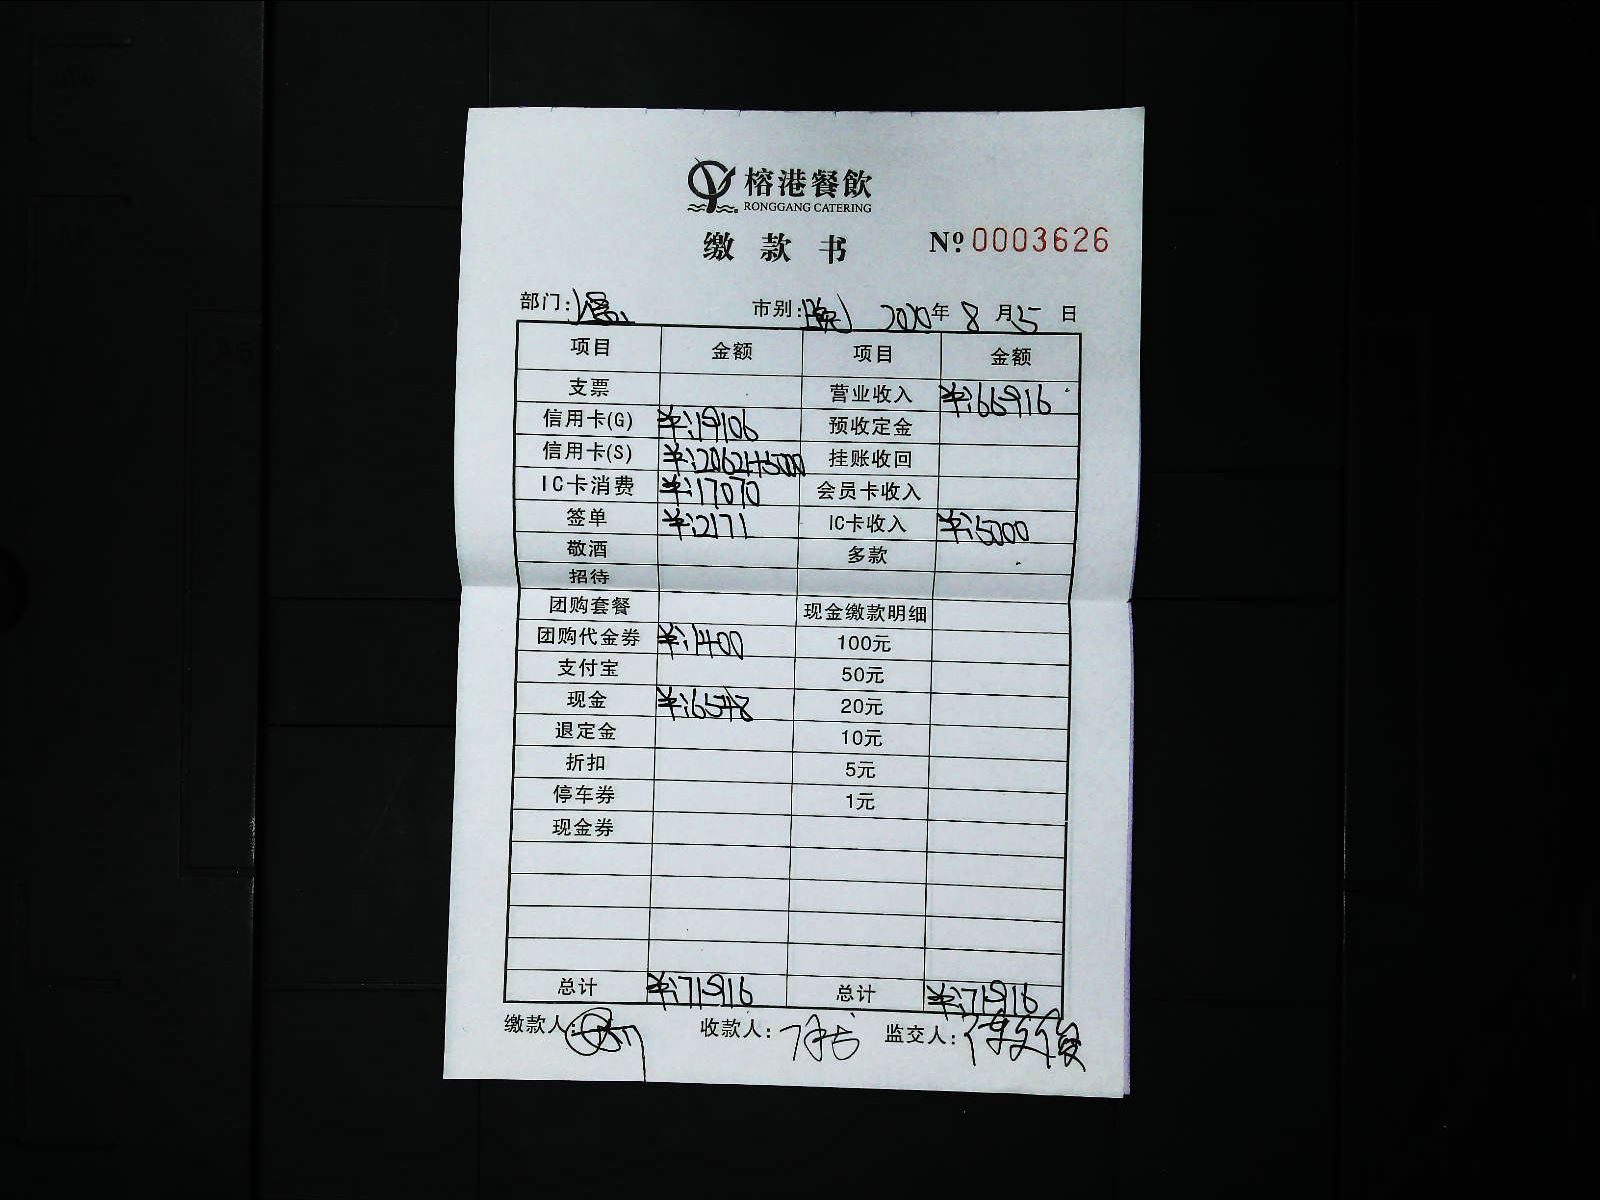 榕港餐飲
RONGGANG CATERING
缴款书 Nº 0003626
部门: 市别: 晚 2020年 8月15日
项目 金额 项目 金额
支票 营业收入 ¥:66916
信用卡(G) ¥:19106 预收定金
信用卡(S) ¥:20621+5000 挂账收回
IC卡消费 ¥:17070 会员卡收入
签单 ¥:2171 IC卡收入 ¥:5000
敬酒 多款
招待
团购套餐 现金缴款明细
团购代金券 ¥:1400 100元
支付宝 50元
现金 ¥:6548 20元
退定金 10元
折扣 5元
停车券 1元
现金券
总计 ¥:71916 总计 ¥:71916
缴款人: 收款人: 监交人: